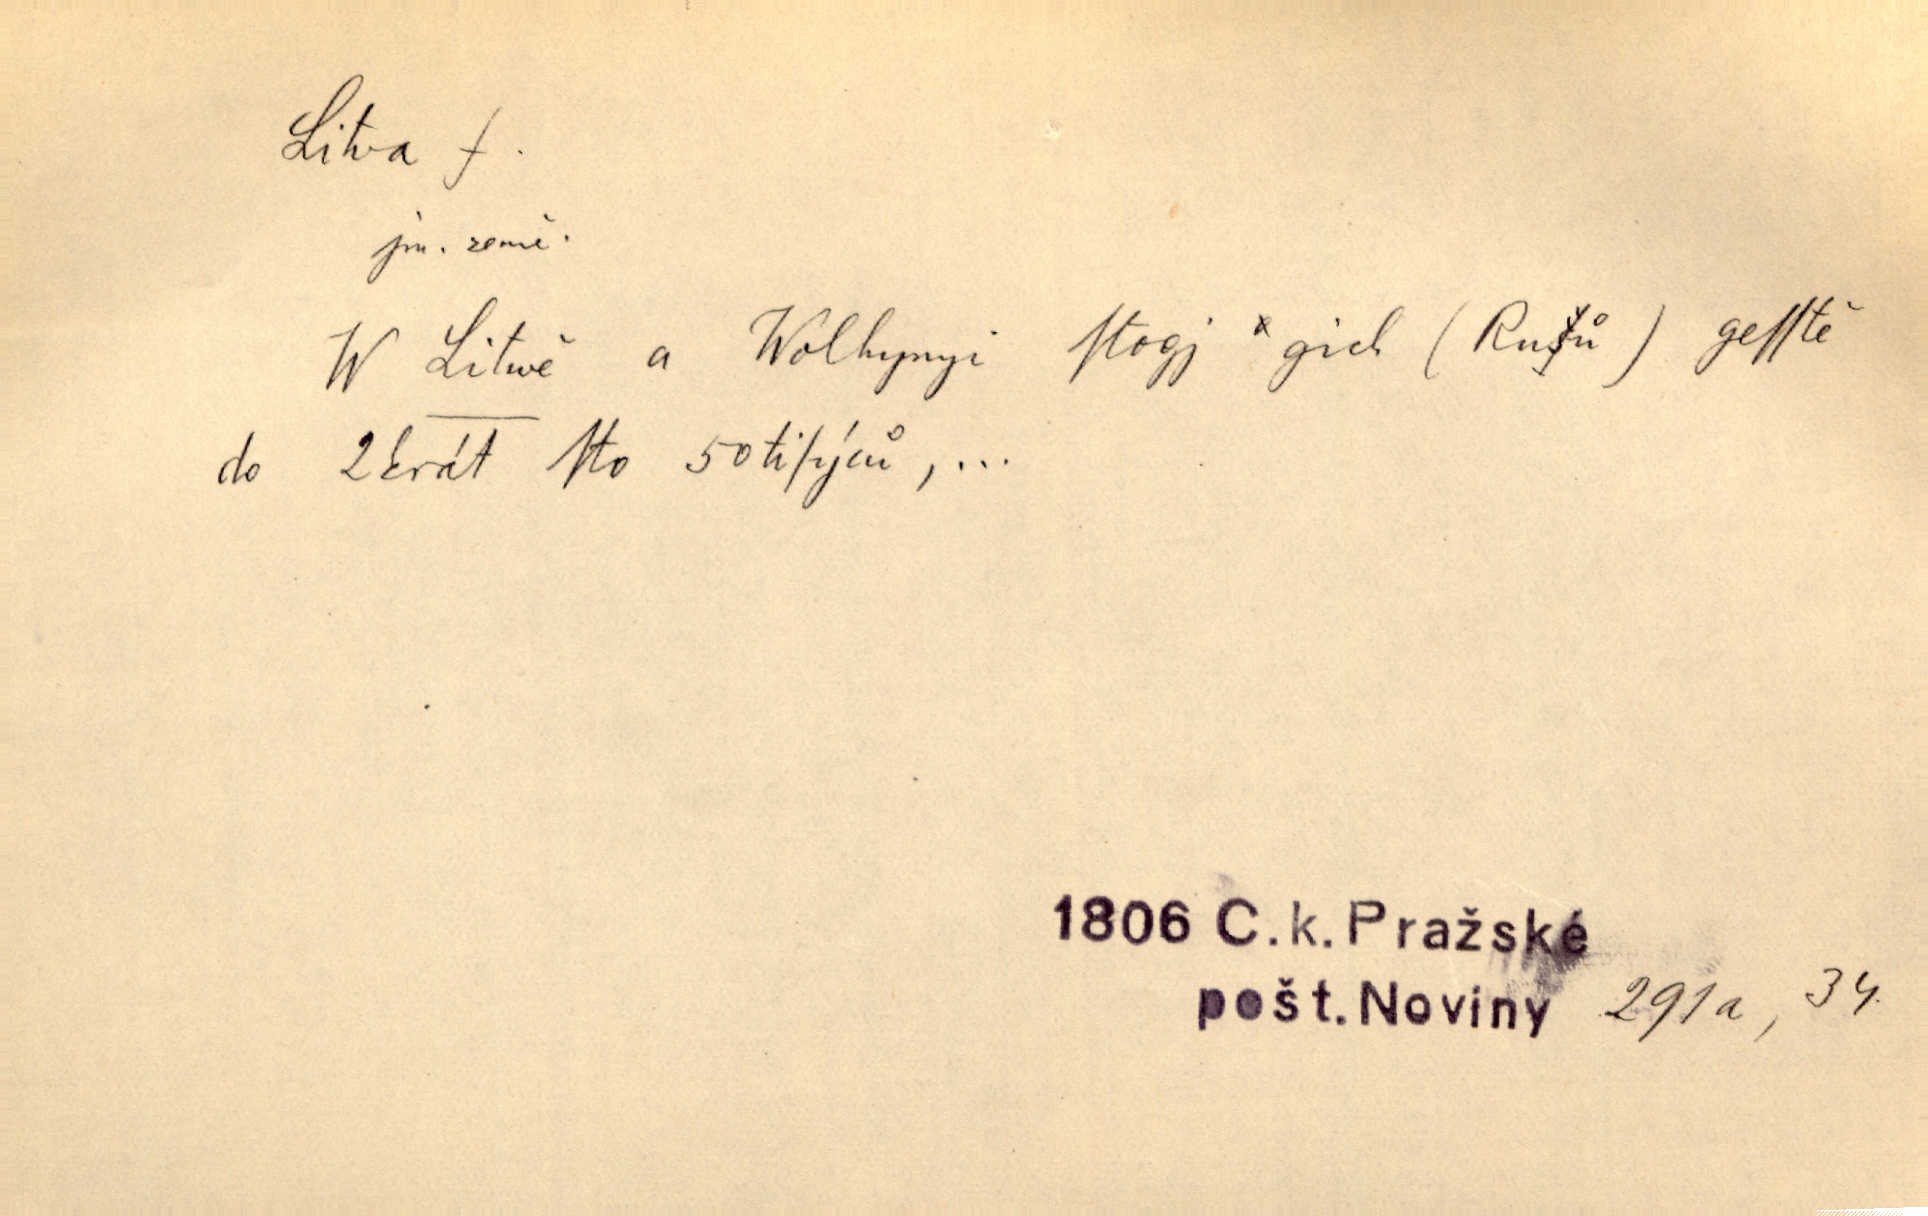 Litva f.
jm. země.
W Litwě a Wolhynyi ſtogj gich (Ruſů) geſſtě
do 2krát ſto 50tiſýců, ...
1806 C.k. Pražské
pošt. Noviny 291a, 34.